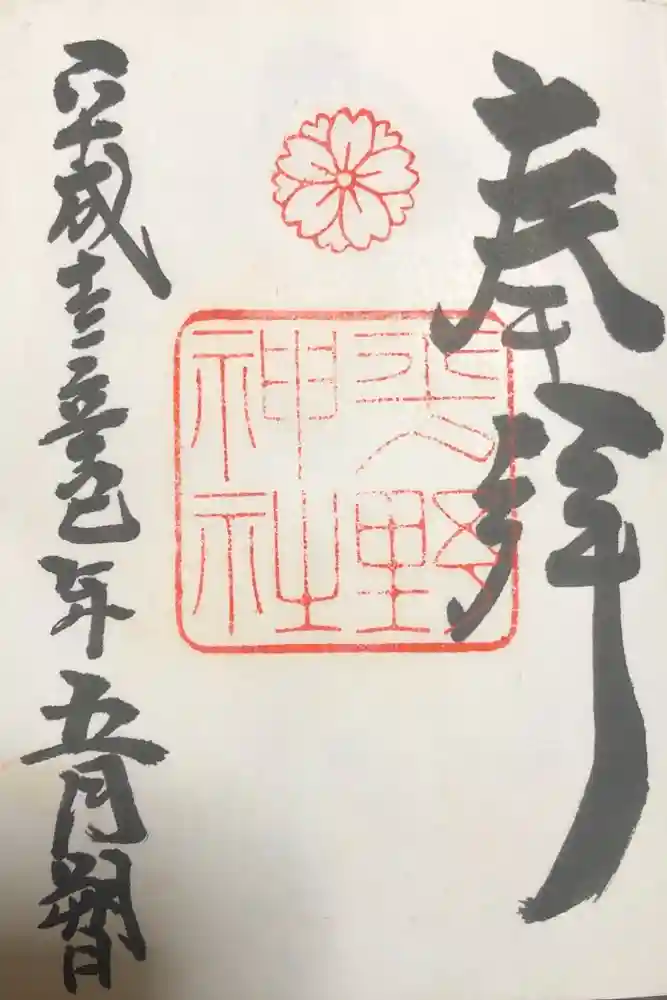 奉拝
平野
神社
平成十三辛巳年五月朔日